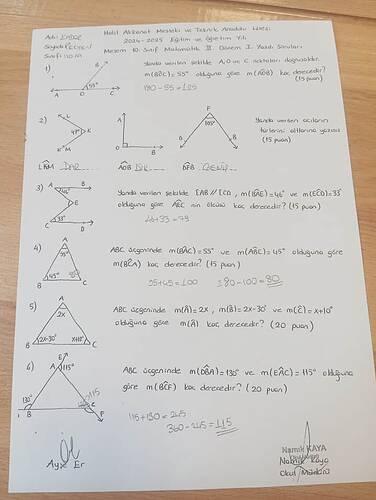 Halil Akkanat Mesleki ve Teknik Anadolu Lisesi
Adı:
2024-2025 Eğitim ve Öğretim Yılı
Soyadı:
Mesem 10. Sınıf Matematik II. Dönem I. Yazılı Soruları
Sınıf:
1)
B
55°
A O C
Yanda verilen şekilde A, O ve C noktaları doğrusaldır.
m(BOC)=55° olduğuna göre m(AOB) kaç derecedir?
(15 puan)
180-55=125
2)
L
47°
K
M
A
O
B
F
105°
D
B
Yanda verilen açıların
türlerini altlarına yazınız
(15 puan)
LKM DAR
AOB DİK
DFB GENİŞ
3)
A B
46°
E
33°
C D
Yanda verilen şekilde [AB // [CD, m(BAE)=46° ve m(ECD)=33°
olduğuna göre AEC nin ölçüsü kaç derecedir? (15 puan)
46+33=79
4)
A
55°
45°
B C
ABC üçgeninde m(BAC)=55° ve m(ABC)=45° olduğuna göre
m(BCA) kaç derecedir? (15 puan)
55+45=100 180-100=80
5)
A
2x
2x-30° x+10°
B C
ABC üçgeninde m(A)=2x, m(B)=2x-30° ve m(C)=x+10°
olduğuna göre m(A) kaç derecedir? (20 puan)
6)
E
A 115°
130° 115
D B C
F
ABC üçgeninde m(DBA)=130° ve m(EAC)=115° olduğuna
göre m(BCF) kaç derecedir? (20 puan)
115+130=245
360-245=115
Ayşe Er
Namık KAYA
Namık Kaya
Okul Müdürü